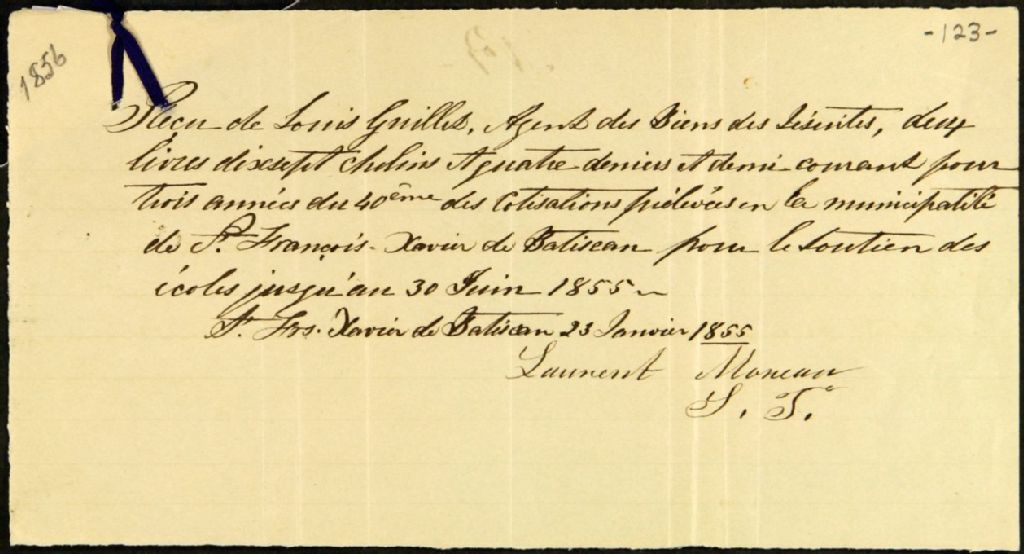 -123-
1856
Reçu de Louis Guillet, Agent des Biens des Jésuites, deux
livres dixsept chelins et quatre deniers et demi courant pour
trois années du 40ème des Cotisations prélevées en la municipalité
de St. François-Xavier de Batiscan pour le soutien des
écoles jusqu'au 30 Juin 1855
St. Frs. Xavier de Batiscan 23 Janvier 1855
Laurent
S. T.